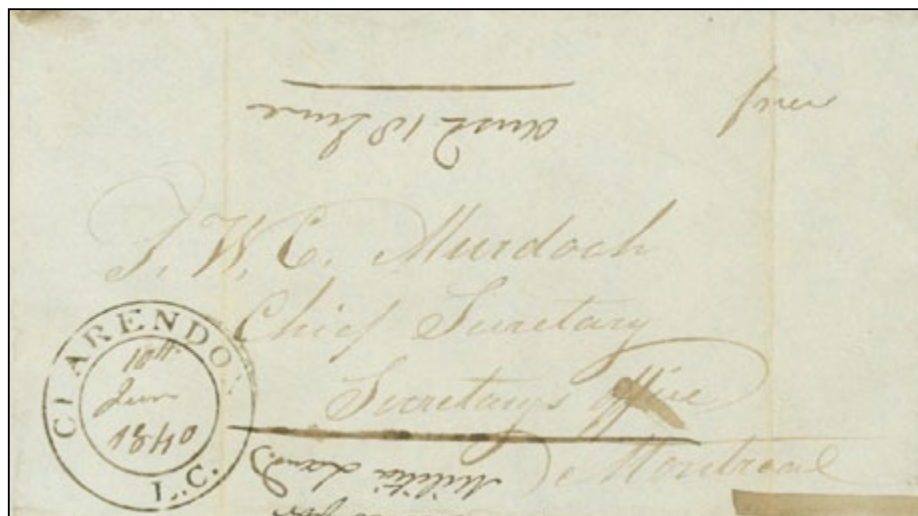 free
ansd 18 June
T. W. C. Murdoch
Chief Secretary
Secretary's office
Montreal
CLARENDON
10th
June
1840
L.C.
Militia Land
for